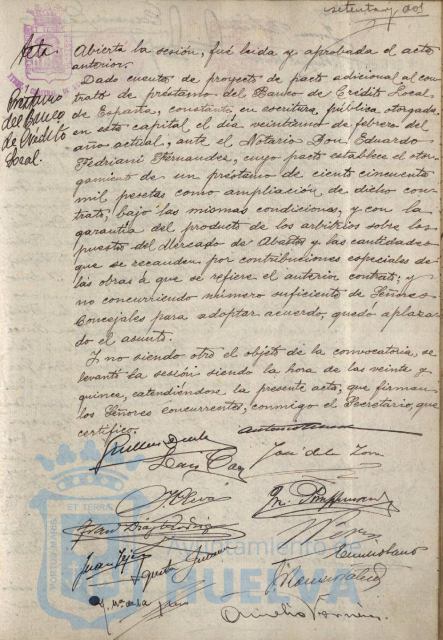 setenta y dos
Acta.
Préstamo
del Banco
de Crédito
Local.
Abierta la sesión, fué leida y aprobada el acta
anterior.
Dada cuenta de proyecto de pacto adicional al con-
trato de préstamo del Banco de Crédito Local,
de España, constante en escritura pública otorgada
en esta capital el día veintiuno de febrero del
año actual, ante el Notario Don Eduardo
Fedriani Fernandez, cuyo pacto establece el otor-
gamiento de un préstamo de ciento cincuenta
mil pesetas como ampliación de dicho con-
trato, bajo las mismas condiciones, y con la
garantía del producto de los arbitrios sobre los
puestos del Mercado de Abastos y las cantidades
que se recauden por contribuciones especiales de
las obras á que se refiere el anterior contrato; y
no concurriendo número suficiente de Señores
Concejales para adoptar acuerdo, quedó aplaza-
do el asunto.
Y no siendo otro el objeto de la convocatoria, se
levantó la sesión siendo la hora de las veinte y
quince, extendiéndose la presente acta, que firman
los Señores concurrentes, conmigo el Secretario, que
certifico.
José de la
Juan
Aurelio
ET TERRÆ
PORTUS MARIS
Ayuntamiento de
HUELVA